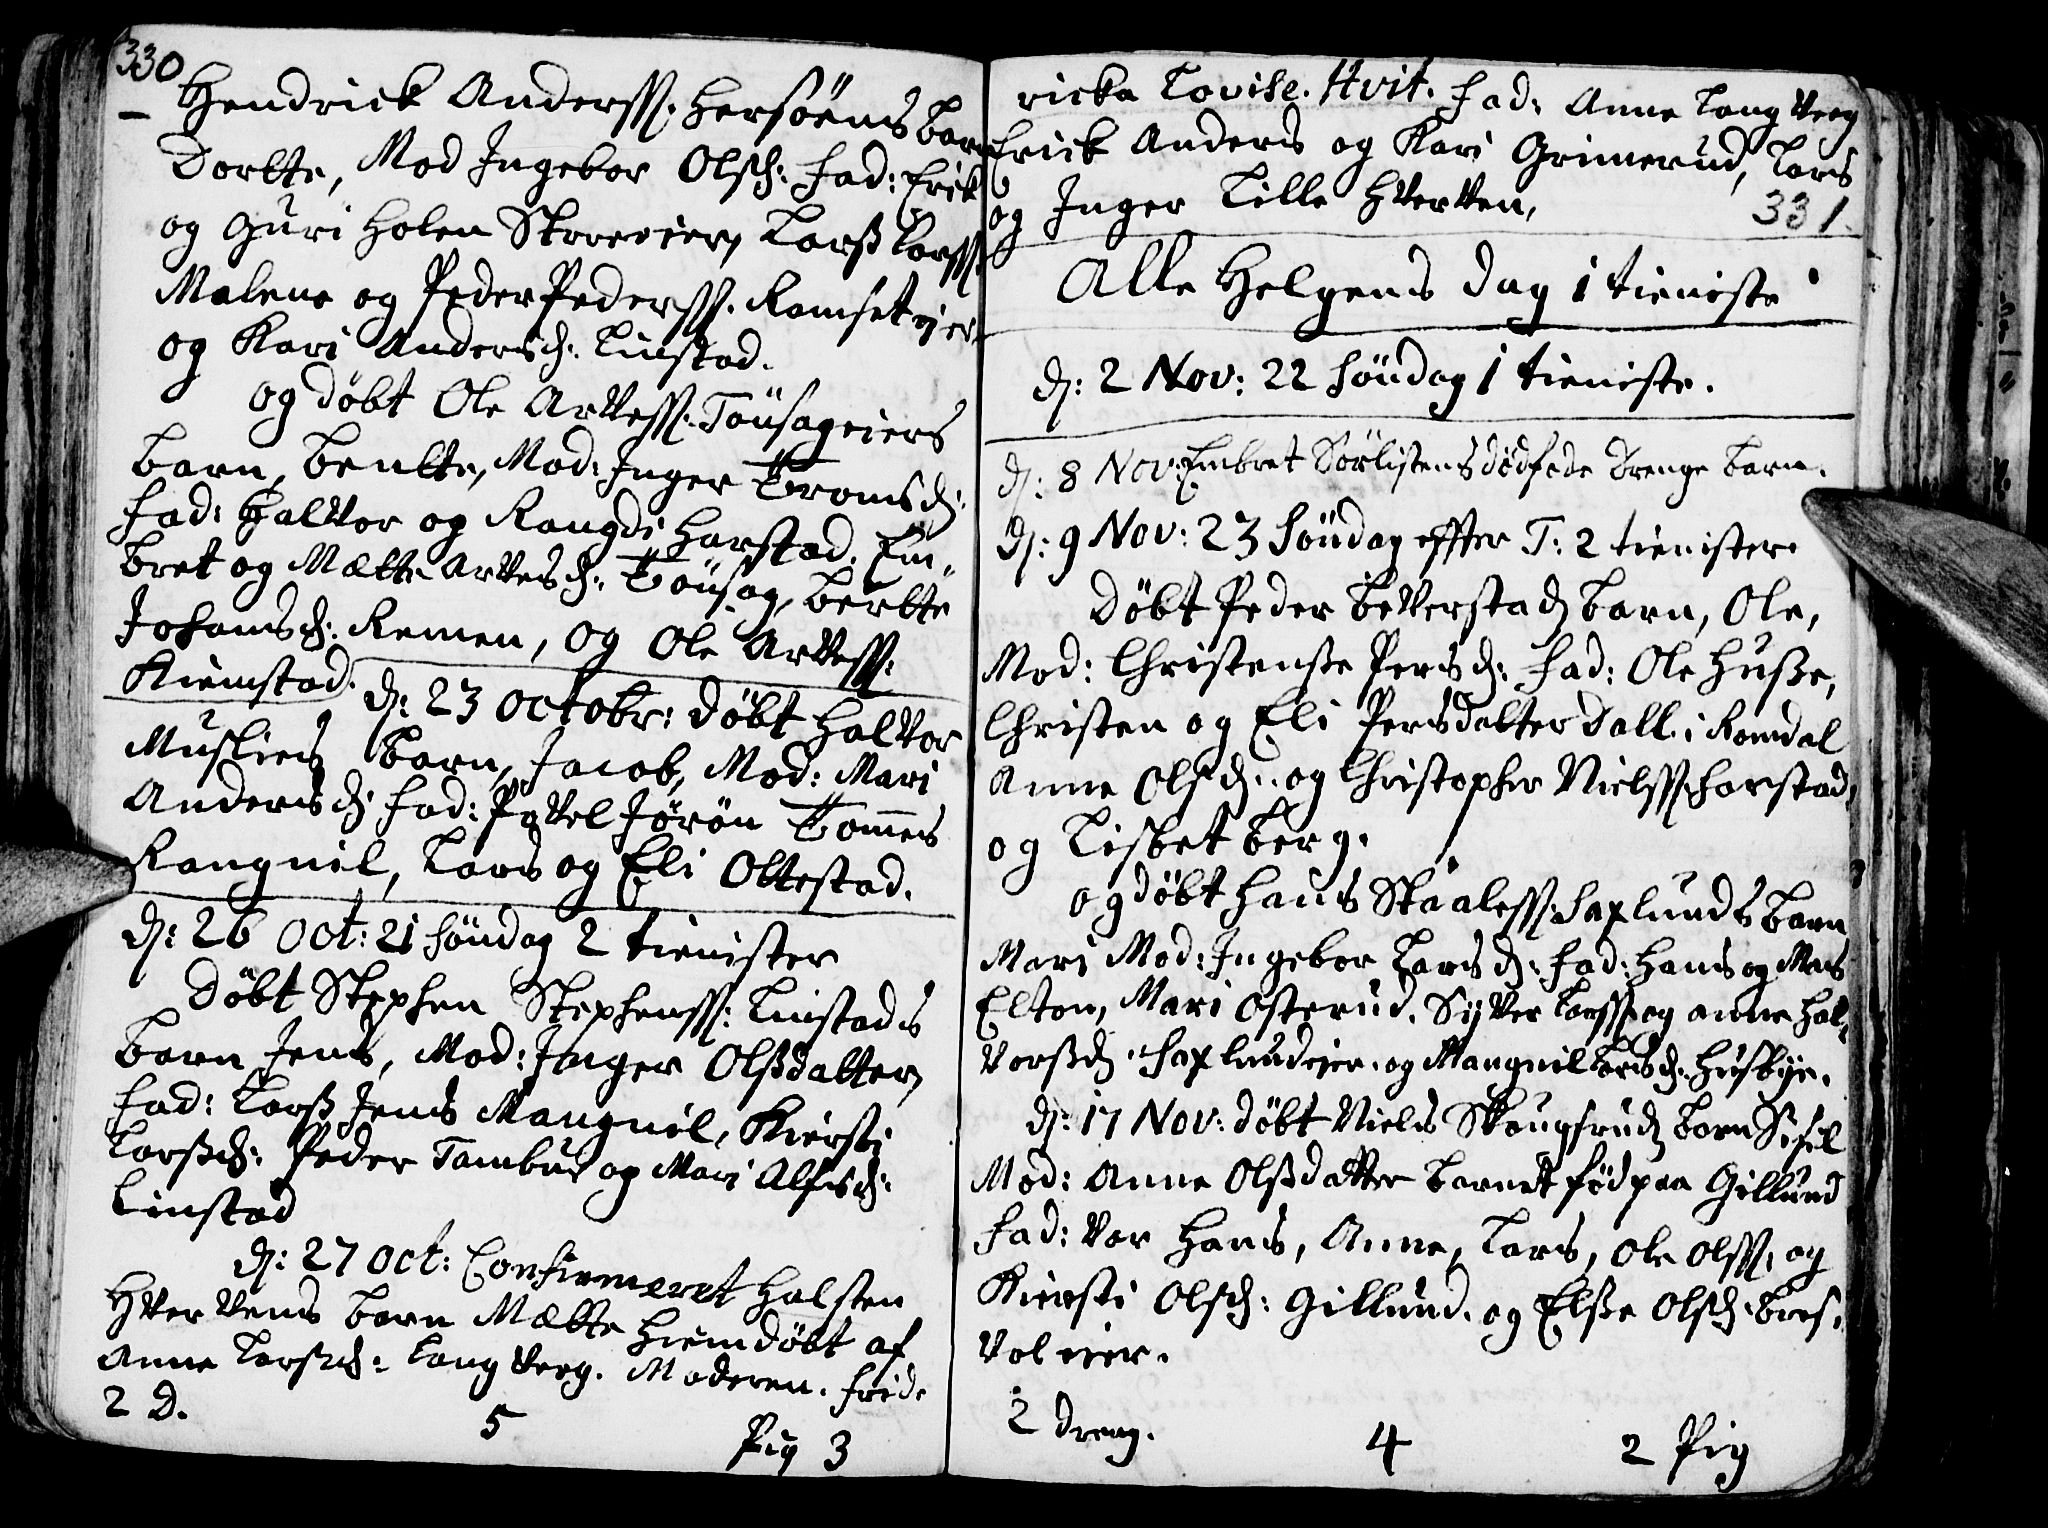 330
Hendrick Anderss: Hersöens barn
Dortte, Mod Ingebor Olsd: fad: Erik
og Guri Holen Skoreier, Larss Larss:
Malene og Peder Pederss: Ramset ejer
og Kari Andersd: Linstad.
og döbt Ole Arvess: Tousageiers
barn, Bentte, Mod: Inger Tromsd:
fad: Halvor og Rangdi Harstad, Em„
bret og Mætte Arvesd: Tousag, Bertte
Johansd: Remen, og Ole Arvess:
Kiemstad.
d: 23 octobr: döbt Halvor
Musliers barn, Jacob, Mod: Mari
Andersd: fad: Povel Jörön Tommes
Rangnil, Lars og Eli Ottestad.
d: 26 oct: 21 söndag 2 tienister
döbt Stephen Stephenss: Linstads
barn Jens, Mod: Inger Olssdatter,
fad: Larss Jens Mangnil, Kiersti
Larssd: Peder Tambur og Mari Alfsd:
Linstad
d: 27 oct: Confirmeret Halsten
Hvervens barn Mætte hiemdöbt af
Anne Larssd: Langverg. Moderen. fride
2 D. 5 Pig 3
ricka Lovise. Hvit. fad: Anne Langverg
Erick Anders og Kari Grimerud, Lars
og Inger Lille Hverven,
331.
Alle Helgens dag 1 tieniste
d: 2 Nov: 22 söndag 1 tieniste.
d: 8 Nov: Embret Sörlistens dödfede drenge barn.
d: 9 Nov: 23 söndag effter T: 2 tienister
döbt Peder Beverstad barn, Ole,
Mod: Christensse Persd: fad: Ole Husse,
Christen og Eli Persdatter Dall i Romdal
Anne Olsd: og Christopher Nielss: Harstad,
og Lisbet Berg.
og döbt Hans Skaaless: Haxlunds barn
Mari Mod: Ingebor Larsd: fad: Hans og
Elton, Mari Osterud, Syver Larss: og Anne Hal„
vorssd: Haxlundejer. og Mangnil Larsd: Husbye.
d: 17 Nov: döbt Niels Skougsrud barn Sisel
Mod: Anne Olssdatter barnet föd paa Gillund
fad: Var Hans, Anne, Lars, Ole Olss: og
Kiersti Olsd: Gillund. og Elsse Olsd: Bres„
vol ejer.
2 dreng. 4 2 Pig